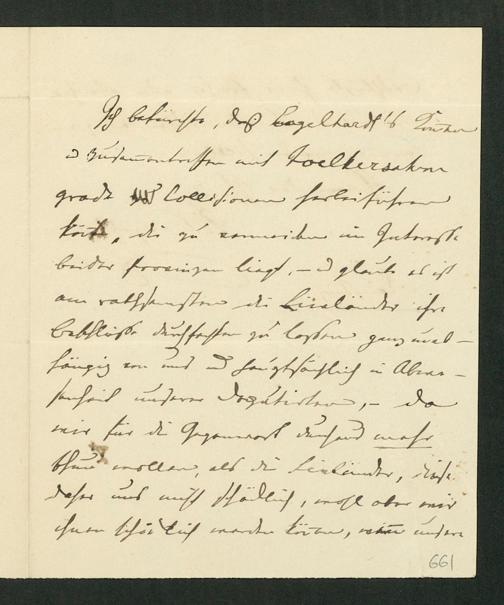 Ich befürchte, daß Engelhardt's Kommen
u Zusammentreffen mit Foelkersahm
grade Collisionen herbeiführen
könnte, die zu vermeiden im Interesse
beider Provinzen liegt, – u glaube es ist
am rathsamsten die Livländer ihre
Beschlüsse durchfassen zu lassen ganz unab-
hängig von uns und hauptsächlich in Abwe-
senheit unserer Deputirten, – Da
wir für die Gegenwart durchaus mehr
thun wollen, als die Livländer, diese
daher uns nicht schädlich, wohl aber wir
ihnen schädlich werden können, wenn unsere
661